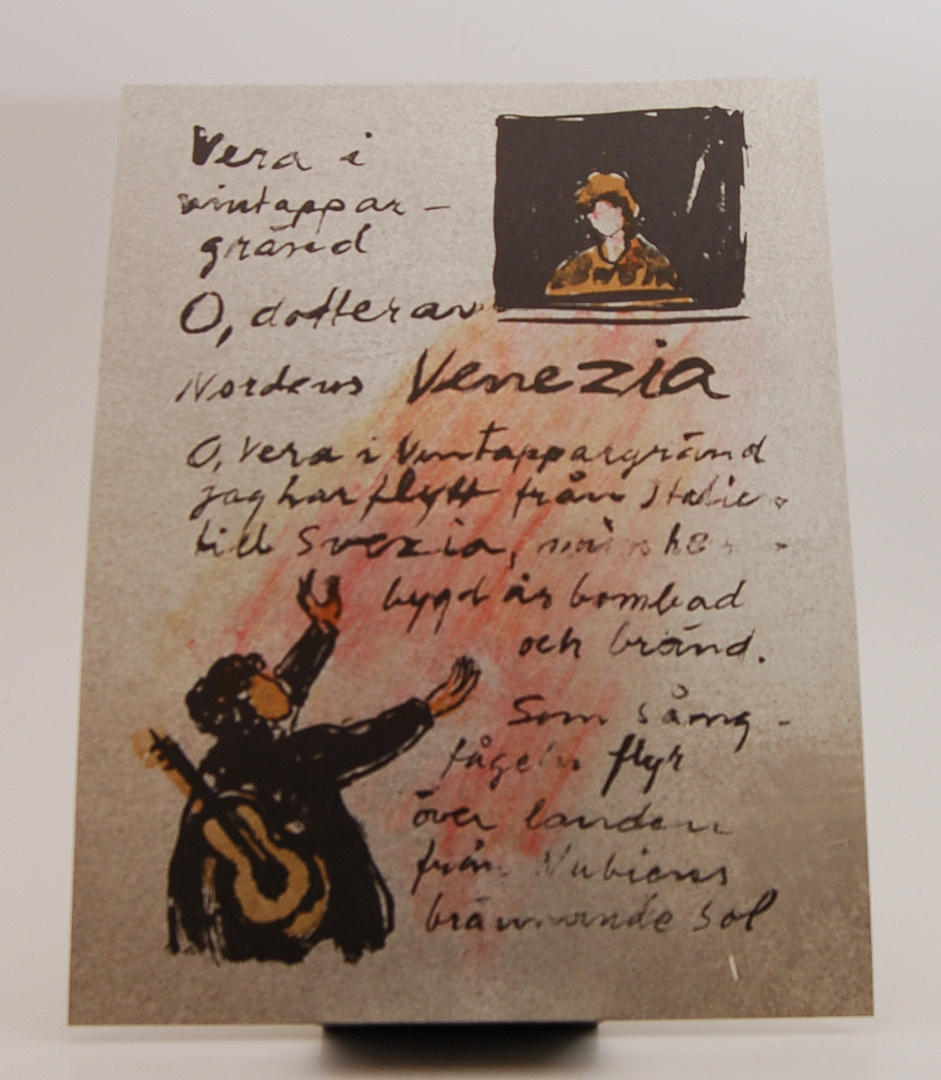 Vera i
vintappar-
gränd
O, dotter av
Nordens Venezia
O, Vera i Vintappargränd
jag har flytt från Italien
till Svezia, min
bygd är bombad
och bränd.
Som sång-
fågeln flyr
över landen
från Nubiens
brännande sol